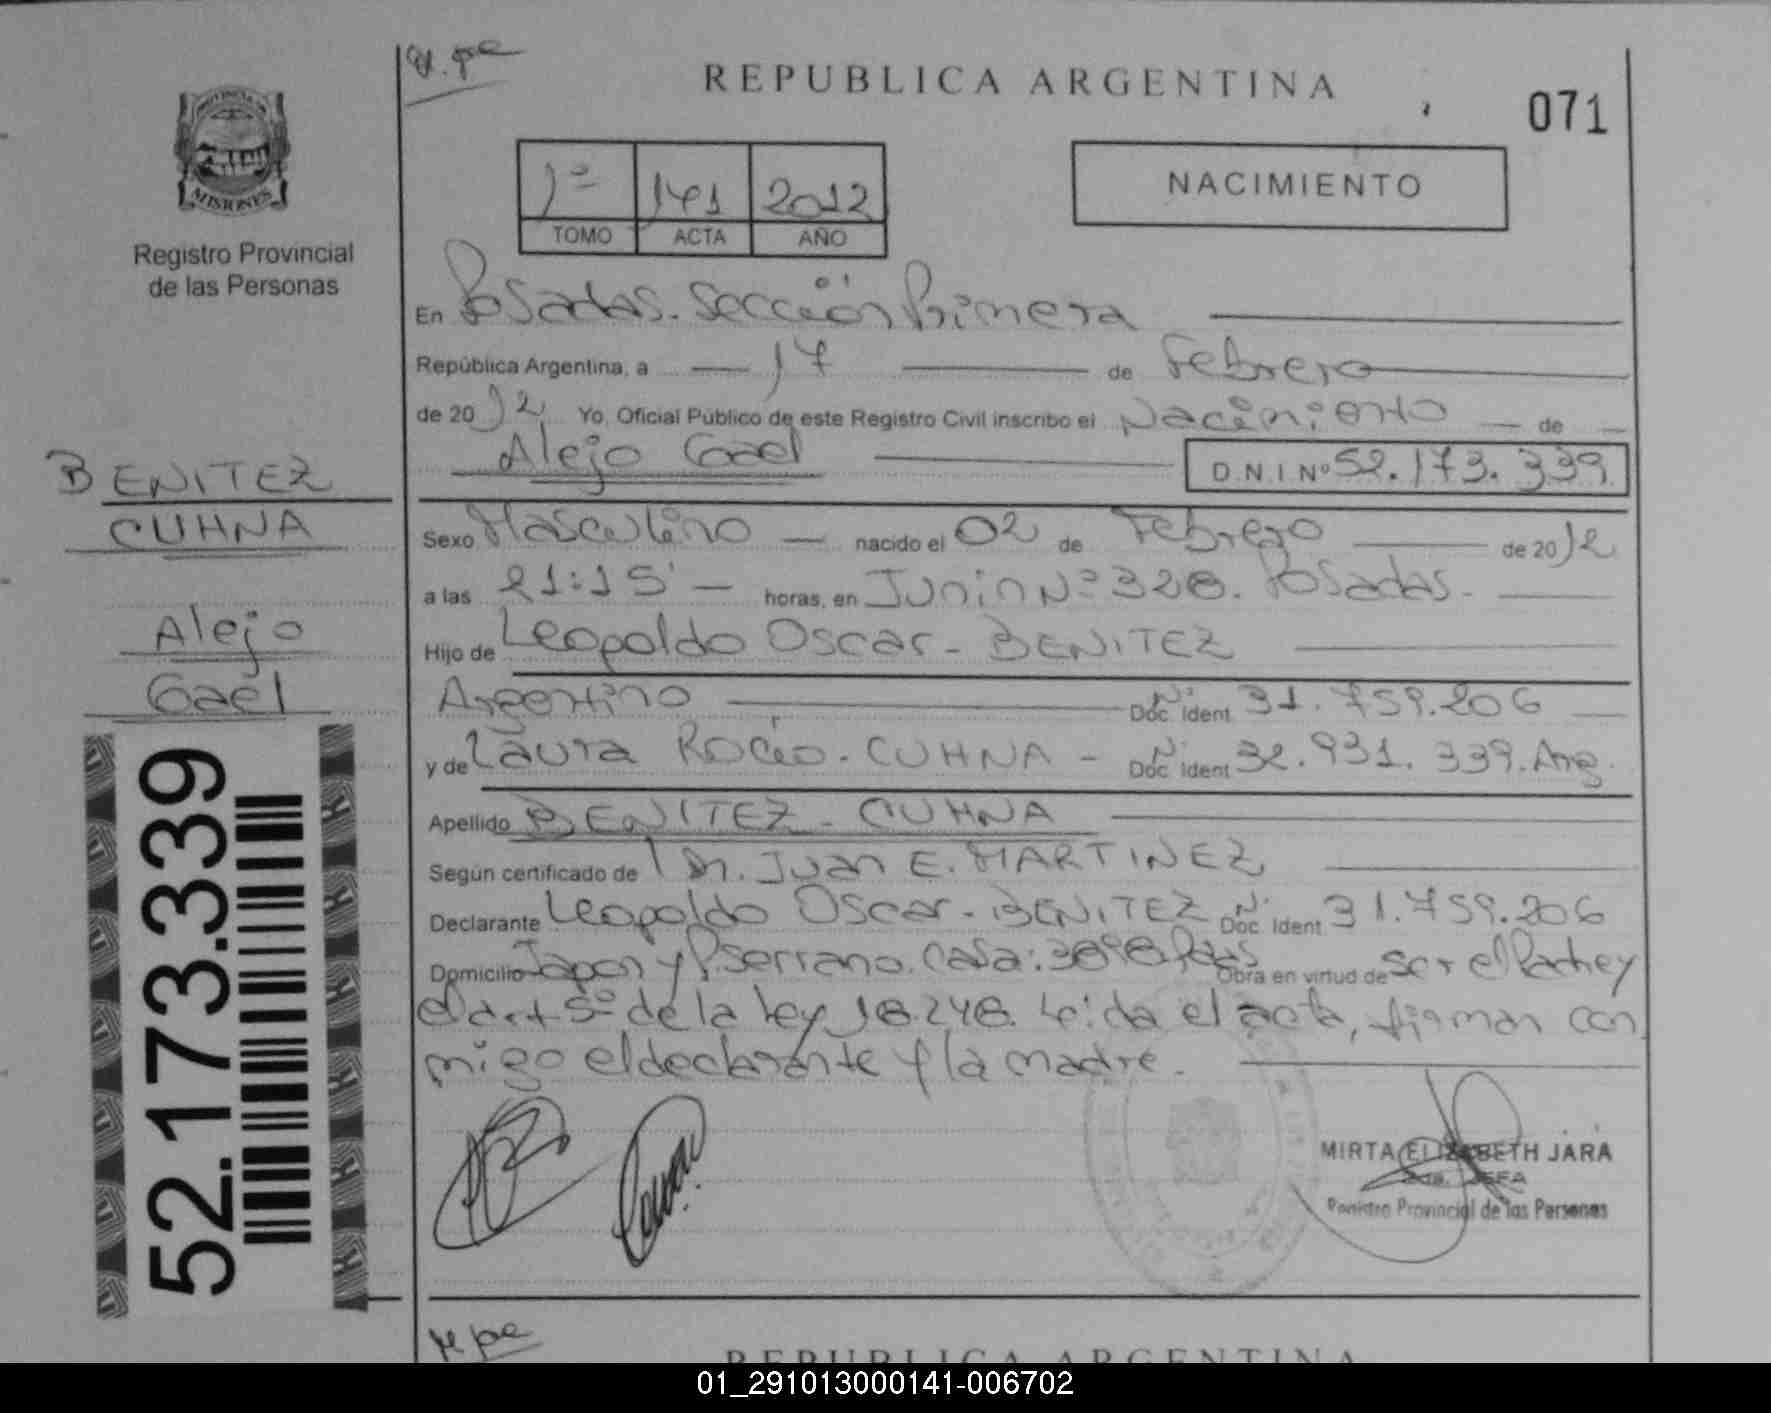 REPUBLICA ARGENTINA
071
1º 141 2012
TOMO ACTA AÑO
NACIMIENTO
MISIONES
Registro Provincial
de las Personas
En Posadas. Sección Primera
República Argentina, a 17 de Febrero
de 2012 Yo, Oficial Público de este Registro Civil inscribo el Nacimiento de
Alejo Gael D.N.I Nº 52.173.339
BENITEZ
CUHNA
Alejo
Gael
52.173.339
Sexo Masculino nacido el 02 de Febrero de 2012
a las 21:15' horas, en Junin Nº 328. Posadas.
Hijo de Leopoldo Oscar - BENITEZ
Argentino Nº Doc. Ident. 31.759.206
y de Laura Rocio - CUHNA - Nº Doc. Ident. 32.931.339. Arg.
Apellido BENITEZ - CUHNA
Según certificado de Dr. Juan E. MARTINEZ
Declarante Leopoldo Oscar - BENITEZ Nº Doc. Ident. 31.759.206
Domicilio Japon y P. Serrano. Casa: 3898 Pdas Obra en virtud de ser el Padre y
el art 5º de la Ley 18.248. Leida el acta, firman con
migo el declarante y la madre.
MIRTA ELIZABETH JARA
JEFA
Registro Provincial de las Personas
REPUBLICA ARGENTINA
01_291013000141-006702